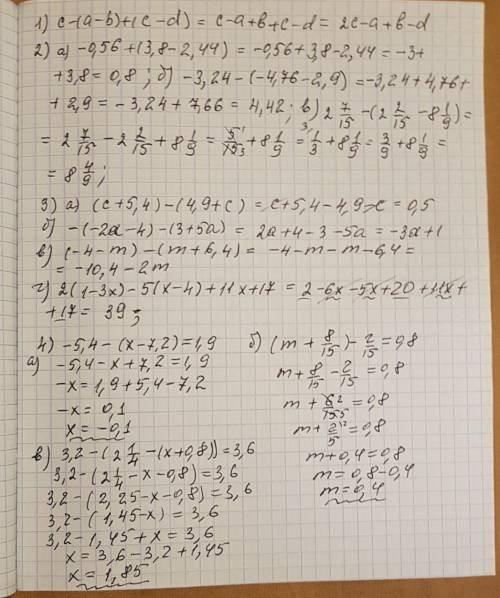 1) c-(a-b)+(c-d) = c-a+b+c-d = 2c-a+b-d
2) а) -0,56+(3,8-2,44) = -0,56+3,8-2,44 = -3+
+3,8 = 0,8; б) -3,24-(-4,76-2,9) = -3,24+4,76+
+2,9 = -3,24+7,66 = 4,42; в) 2 7/15 - (2 2/15 - 8 1/9) =
= 2 7/15 - 2 2/15 + 8 1/9 = 5/15 + 8 1/9 = 1/3 + 8 1/9 = 3/9 + 8 1/9 =
= 8 4/9;
3) а) (c+5,4)-(4,9+c) = c+5,4-4,9-c = 0,5
б) -(-2a-4)-(3+5a) = 2a+4-3-5a = -3a+1
в) (-4-m)-(m+6,4) = -4-m-m-6,4 =
= -10,4-2m
г) 2(1-3x)-5(x-4)+11x+17 = 2-6x-5x+20+11x+
+17 = 39;
4) -5,4-(x-7,2)=1,9
а) -5,4-x+7,2=1,9
-x=1,9+5,4-7,2
-x=0,1
x=-0,1
б) (m+8/15)-2/15=0,8
m+8/15-2/15=0,8
m+6/15=0,8
m+2/5=0,8
m+0,4=0,8
m=0,8-0,4
m=0,4
в) 3,2-(2 1/4-(x+0,8))=3,6
3,2-(2 1/4-x-0,8)=3,6
3,2-(2,25-x-0,8)=3,6
3,2-(1,45-x)=3,6
3,2-1,45+x=3,6
x=3,6-3,2+1,45
x=1,85